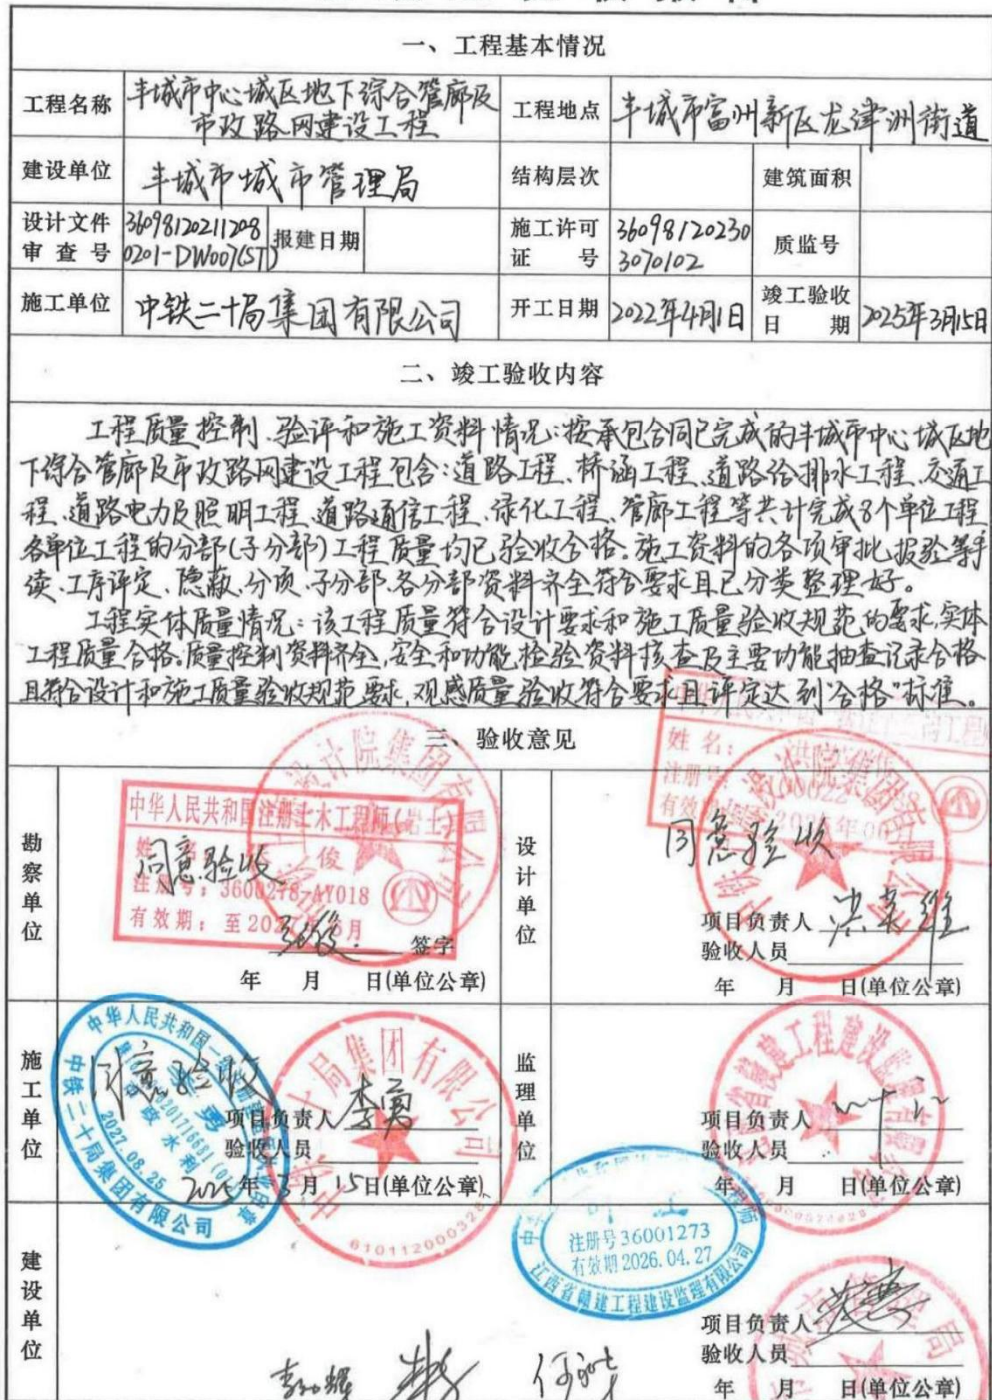 一、工程基本情况
工程名称 丰城市中心城区地下综合管廊及市政路网建设工程 工程地点 丰城市富州新区龙津洲街道
建设单位 丰城市城市管理局 结构层次 建筑面积
设计文件审查号 360981202112080201-DW007(ST) 报建日期 施工许可证号 360981202303070102 质监号
施工单位 中铁二十局集团有限公司 开工日期 2022年4月1日 竣工验收日期 2025年3月15日
二、竣工验收内容
工程质量控制、验评和施工资料情况:按承包合同已完成的丰城市中心城区地
下综合管廊及市政路网建设工程包含:道路工程、桥涵工程、道路给排水工程、交通工
程、道路电力及照明工程、道路通信工程、绿化工程、管廊工程等共计完成8个单位工程
各单位工程的分部(子分部)工程质量均已验收合格。施工资料的各项审批报验等手
续、工序评定、隐蔽、分项、子分部、各分部资料齐全符合要求且已分类整理好。
工程实体质量情况:该工程质量符合设计要求和施工质量验收规范的要求,实体
工程质量合格。质量控制资料齐全,安全和功能检验资料核查及主要功能抽查记录合格
且符合设计和施工质量验收规范要求,观感质量验收符合要求且评定达到“合格”标准。
三、验收意见
勘察单位
中华人民共和国注册土木工程师(岩土)
同意验收
俊
注册号:3600278-AY018
有效期:至202 月
签字
年 月 日(单位公章)
设计单位
姓名:
注册号
有效
同意验收
设计院集团有限公司
项目负责人
验收人员
年 月 日(单位公章)
施工单位
中华人民共和国一级注册建造师
同意验收
市政 水利
2027.08.25
中铁二十局集团有限公司
项目负责人 李勇
验收人员
2025年3月15日(单位公章)
十局集团有限公司
监理单位
省赣建工程建设监理有限公司
项目负责人
验收人员
年 月 日(单位公章)
注册号36001273
有效期2026.04.27
江西省赣建工程建设监理有限公司
建设单位
项目负责人
验收人员
年 月 日(单位公章)